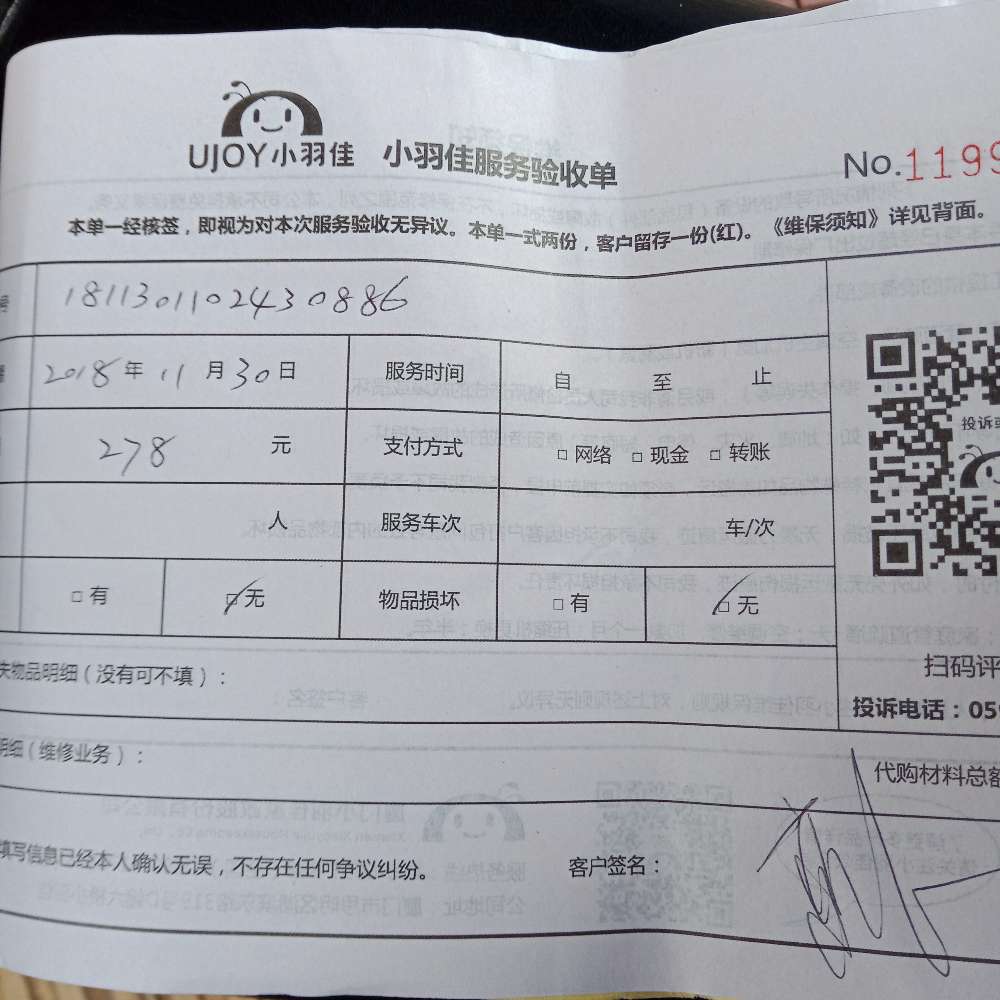 UJOY小羽佳 小羽佳服务验收单 No.1199
本单一经核签，即视为对本次服务验收无异议。本单一式两份，客户留存一份(红)。《维保须知》详见背面。
号 1811301102430886
2018年11月30日 服务时间 自 至 止
278 元 支付方式 □ 网络 □ 现金 □ 转账
投诉或
人 服务车次 车/次
□ 有 □ 无 物品损坏 □ 有 □ 无
扫码评
失物品明细（没有可不填）：
投诉电话：059
明细（维修业务）：
代购材料总额
填写信息已经本人确认无误，不存在任何争议纠纷。 客户签名：